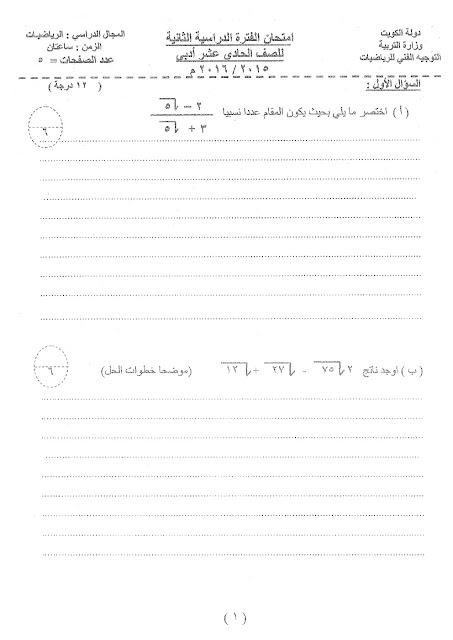 دولة الكويت
وزارة التربية
التوجيه الفني للرياضيات
امتحان الفترة الدراسية الثانية
للصف الحادي عشر أدبي
٢٠١٥ / ٢٠١٦ م
المجال الدراسي : الرياضيات
الزمن : ساعتان
عدد الصفحات = ٥
السؤال الأول :
( ١٢ درجة )
(أ) اختصر ما يلي بحيث يكون المقام عددا نسبيا
٢ − √٥
٣ + √٥
٦
( ب ) اوجد ناتج ٢√٧٥ - √٢٧ + √١٢ (موضحا خطوات الحل)
٦
( ١ )